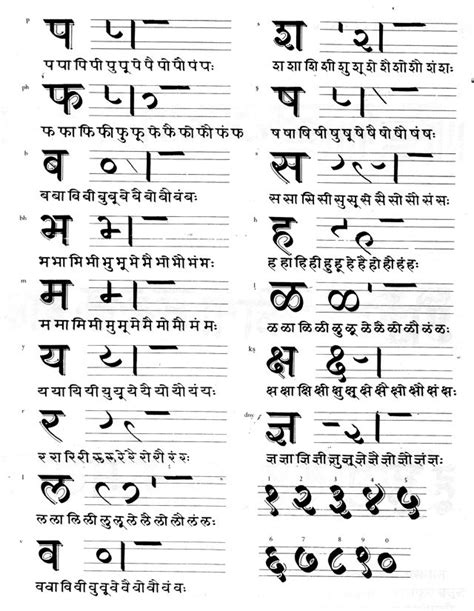 p
प
प पा पि पी पु पू पे पै पो पौ पं पः
ph
फ
फ फा फि फी फु फू फे फै फो फौ फं फ
b
ब
ब बा बि बी बु बू बे बै बो बौ बं बः
bh
भ
भ भा भि भी भु भू भे भै भो भौ भं भः
m
म
म मा मि मी मु मू मे मै मो मौ मं मः
y
य
य या यि यी यु यू ये यै यो यौ यं यः
r
र
र रा रि री रु रू रे रै रो रौ रं रः
l
ल
ल ला लि ली लु लू ले लै लो लौ लं लः
व
व वा वि वी वु वू वे वै वो वौ वं वः
श
श शा शि शी शु शू शे शै शो शौ शं शः
ष
ष षा षि षी षु षू षे षै षो षौ षं षः
s
स
स सा सि सी सु सू से सै सो सौ सं सः
h
ह
ह हा हि ही हु हू हे है हो हौ हं हः
ळ
ळ ळा ळि ळी ळु ळू ळे ळै ळो ळौ ळं ळः
kṣ
क्ष
क्ष क्षा क्षि क्षी क्षु क्षू क्षे क्षै क्षो क्षौ क्षं क्षः
dny
ज्ञ
ज्ञ ज्ञा ज्ञि ज्ञी ज्ञु ज्ञू ज्ञे ज्ञै ज्ञो ज्ञौ ज्ञं ज्ञः
1 2 3 4 5
१ २ ३ ४ ५
6 7 8 9 0
६ ७ ८ ९ ०